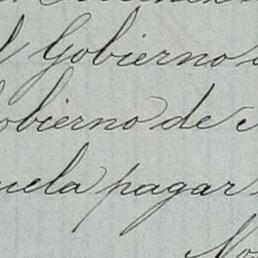 l Gobierno
obierno de
uela pagar
No